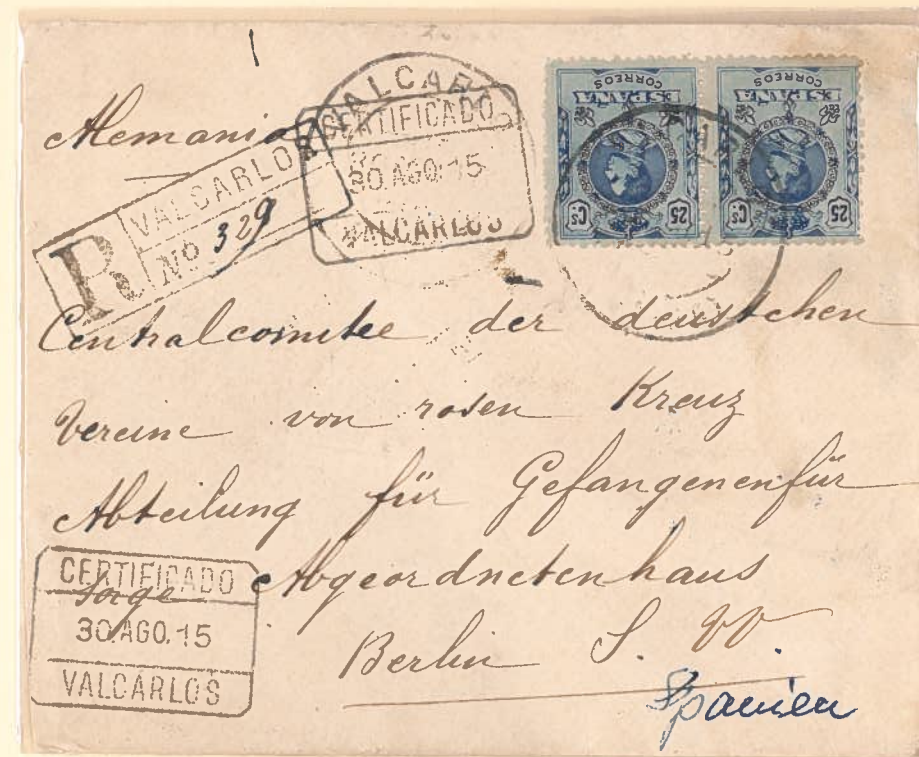 Alemania
VALCARLOS
CERTIFICADO
30.AGO.15
VALCARLOS
R VALCARLOS
Nº 329
CORREOS
ESPAÑA
25 Cs
CORREOS
ESPAÑA
25 Cs
Centralcomitee der deustchen
Vereine von rosen Kreuz
Abteilung für Gefangenenfür
sorge Abgeordnetenhaus
CERTIFICADO
30.AGO.15
VALCARLOS
Berlin S. W.
Spanien